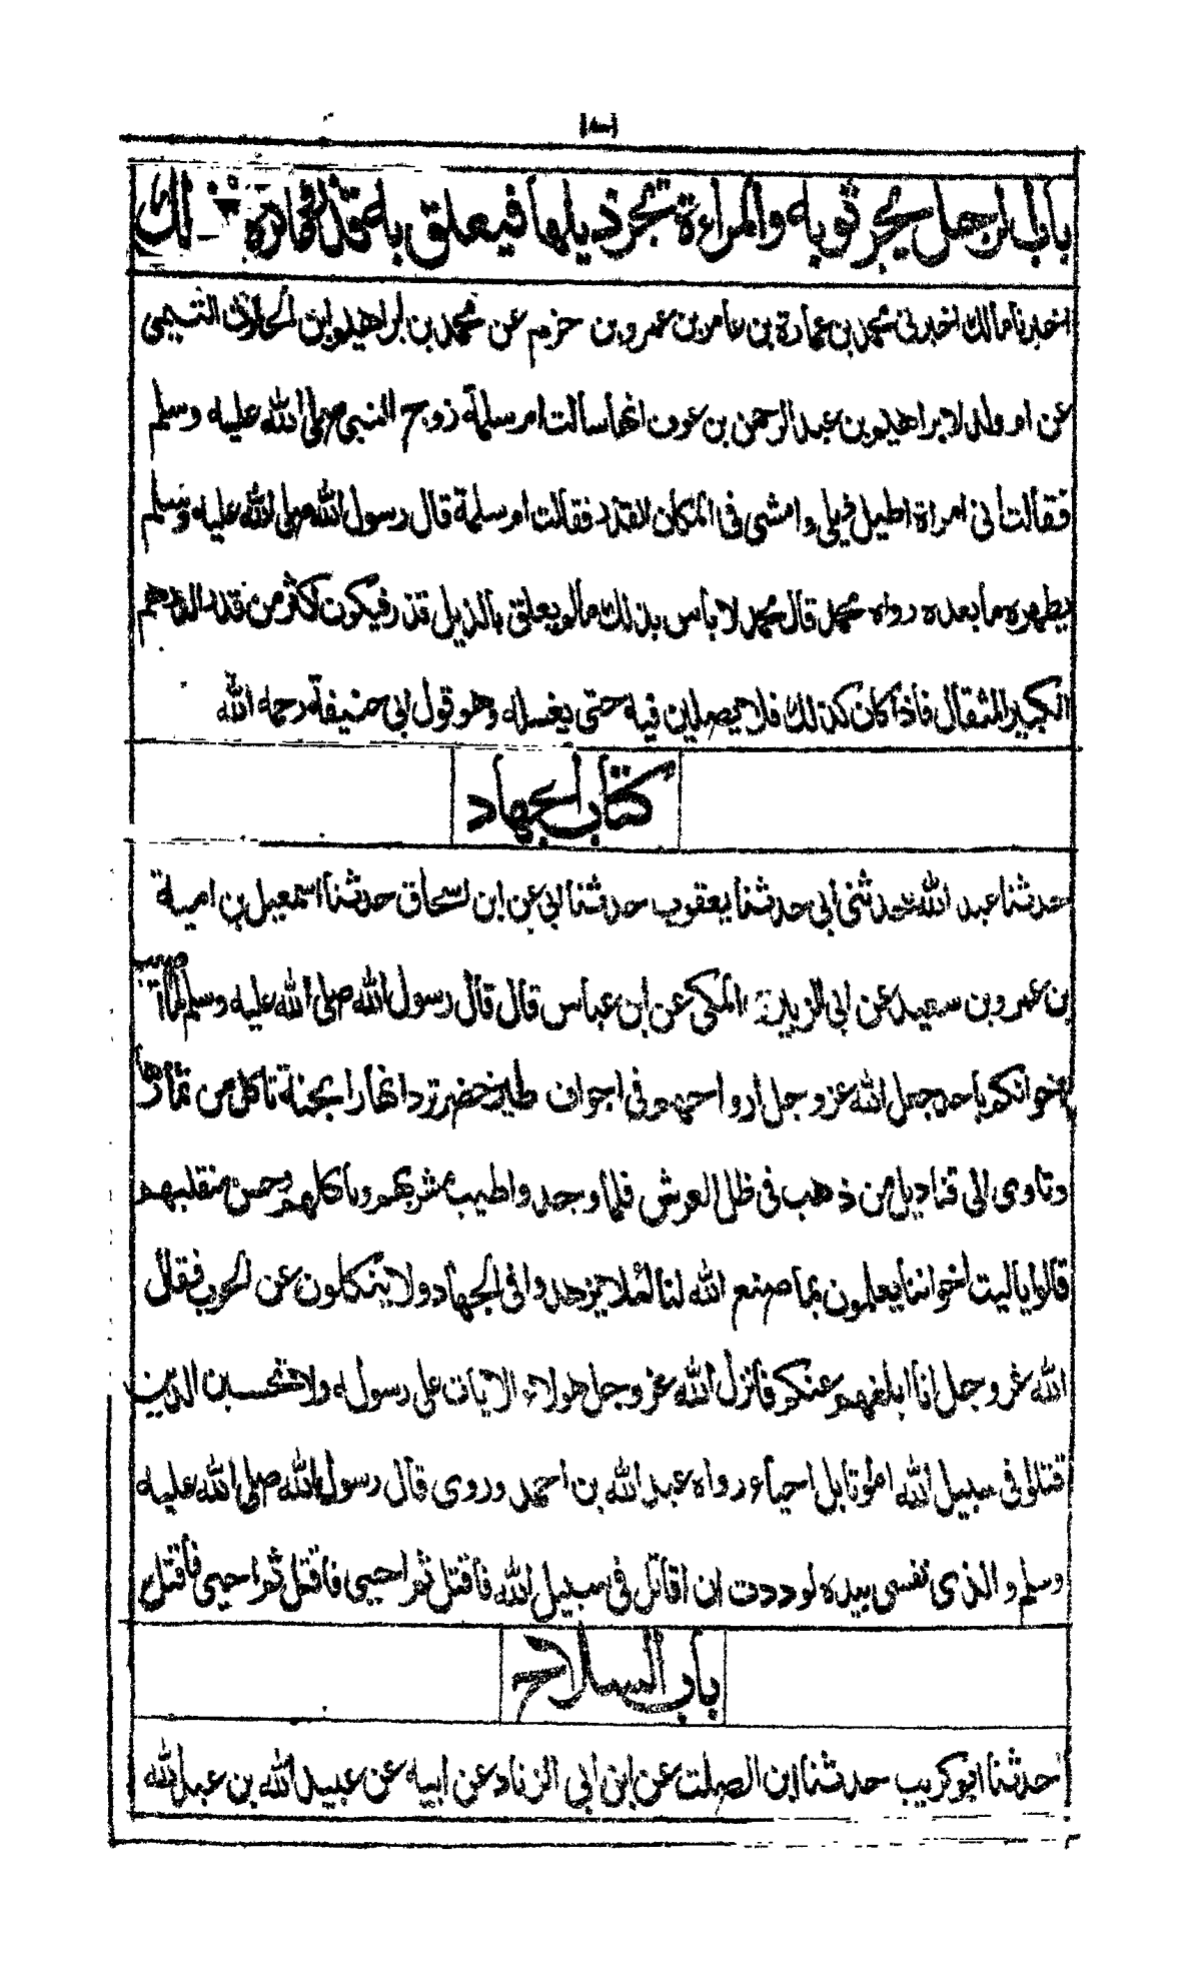 باب الرجل يجر ثوبه والمراءة تجر ذيلها فيعلق به قذر
اخبرنا مالك اخبرنى محمد بن عمارة بن عامر بن عمرو بن حزم عن محمد بن ابراهيم بن الحارث التيمى
عن ام ولد لابراهيم بن عبد الرحمن بن عوف انها سالت ام سلمة زوج النبى صلى الله عليه وسلم
فقالت انى امراة اطيل ذيلى وامشى فى المكان القذر فقالت ام سلمة قال رسول الله صلى الله عليه وسلم
يطهره ما بعده رواه محمد قال محمد لا باس بذلك مالم يعلق بالذيل قذر فيكون اكثر من قدر الدرهم
الكبير المثقال فاذا كان كذلك فلا يصلين فيه حتى يغسله وهو قول ابى حنيفة رحمه الله
كتاب الجهاد
حدثنا عبد الله حدثنى ابى حدثنا يعقوب حدثنا ابى عن ابن اسحاق حدثنا اسمعيل بن امية
بن عمرو بن سعيد عن ابى الزبير المكى عن ابن عباس قال قال رسول الله صلى الله عليه وسلم لما اصيب
اخوانكم باحد جعل الله عز وجل ارواحهم فى اجواف طير خضر ترد انهار الجنة تاكل من ثمارها
وتاوى الى قناديل من ذهب فى ظل العرش فلما وجدوا طيب مشربهم وماكلهم وحسن منقلبهم
قالوا ياليت اخواننا يعلمون بما صنع الله لنا لئلا يزهدوا فى الجهاد ولا ينكلون عن الحرب فقال
الله عز وجل انا ابلغهم عنكم فانزل الله عز وجل هولاء الايات على رسوله ولا تحسبن الذين
قتلو فى سبيل الله امواتا بل احياء رواه عبد الله بن احمد وروى قال رسول الله صلى الله عليه
وسلم والذى نفسى بيده لوددت ان اقاتل فى سبيل الله فاقتل ثم احيى فاقتل ثم احيى فاقتل
باب السلاح
حدثنا ابو كريب حدثنا ابن الصلت عن ابن ابى الزناد عن ابيه عن عبيد الله بن عبد الله